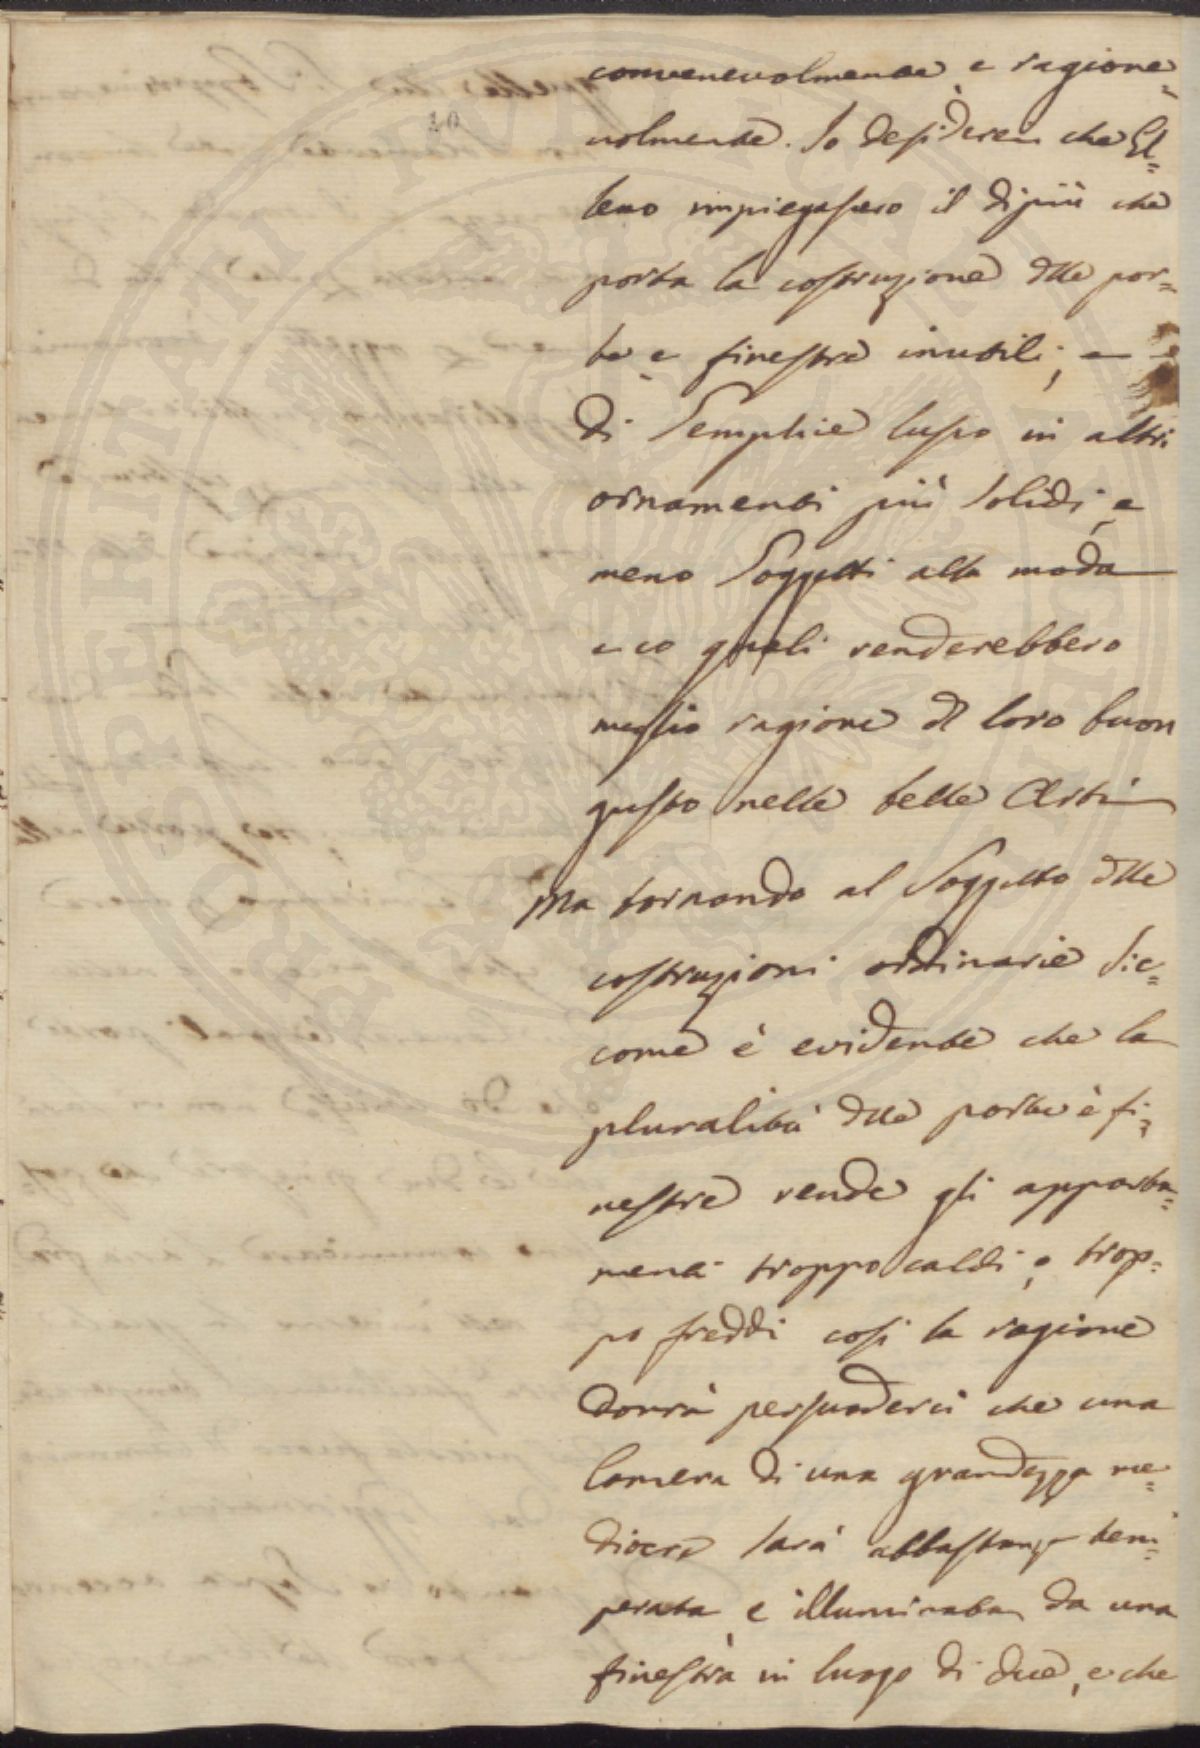 convenevolmente, e ragione=
volmente. Io desiderei che El=
leno impiegassero il dipiù che
porta la costruzione dlle por=
te, e finestre inutili, e
di Semplice lusso in altri
ornamenti più solidi, e
meno Soggetti alla moda
e co quali renderebbero
meglio ragione dl loro buon
gusto nelle belle Arti
Ma tornando al Soggetto dlle
costruzioni ordinarie sic=
come è evidente che la
pluralità dlle porte è fi=
nestre rende gli apparta=
menti troppo caldi, o trop=
po freddi così la ragione
dovrà persuaderci che una
Camera di una grandezza me=
diocre sarà abbastanza tem=
perata, e illuminata da una
finestra in luogo di due, e che
20
PROSPERITATI PUBLICAE AUGENDAE